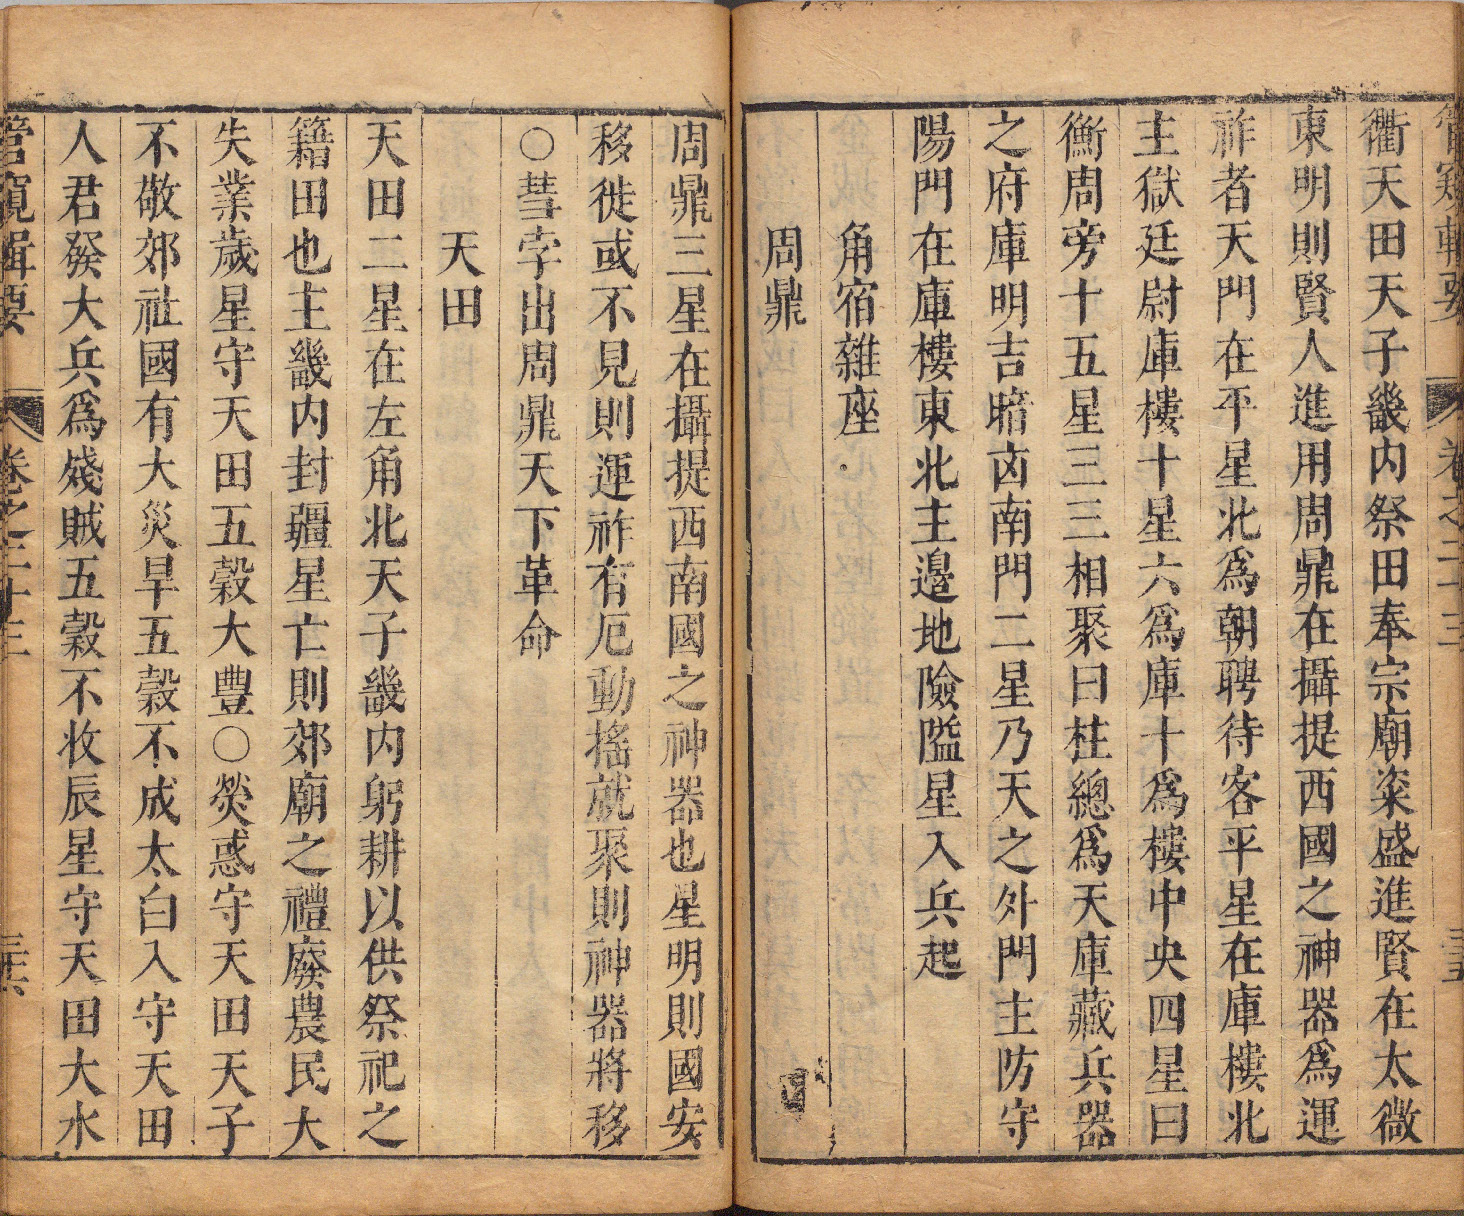 管窺輯要 卷之二十三 三五
衢天田天子畿内祭田奉宗廟粢盛進賢在太微
東明則賢人進用周鼎在攝提西國之神器爲運
祚者天門在平星北爲朝聘待客平星在庫樓北
主獄廷尉庫樓十星六爲庫十爲樓中央四星曰
衡周旁十五星三三相聚曰柱總爲天庫藏兵器
之府庫明吉暗凶南門二星乃天之外門主防守
陽門在庫樓東北主邊地險隘星入兵起
角宿雜座
周鼎
周鼎三星在攝提西南國之神器也星明則國安
移徙或不見則運祚有厄動搖就聚則神器將移
○彗孛出周鼎天下革命
天田
天田二星在左角北天子畿内躬耕以供祭祀之
籍田也主畿内封疆星亡則郊廟之禮廢農民大
失業歲星守天田五穀大豐○熒惑守天田天子
不敬郊社國有大災旱五穀不成太白入守天田
人君發大兵爲殘賊五穀不收辰星守天田大水
管窺輯要 卷之二十三 三六